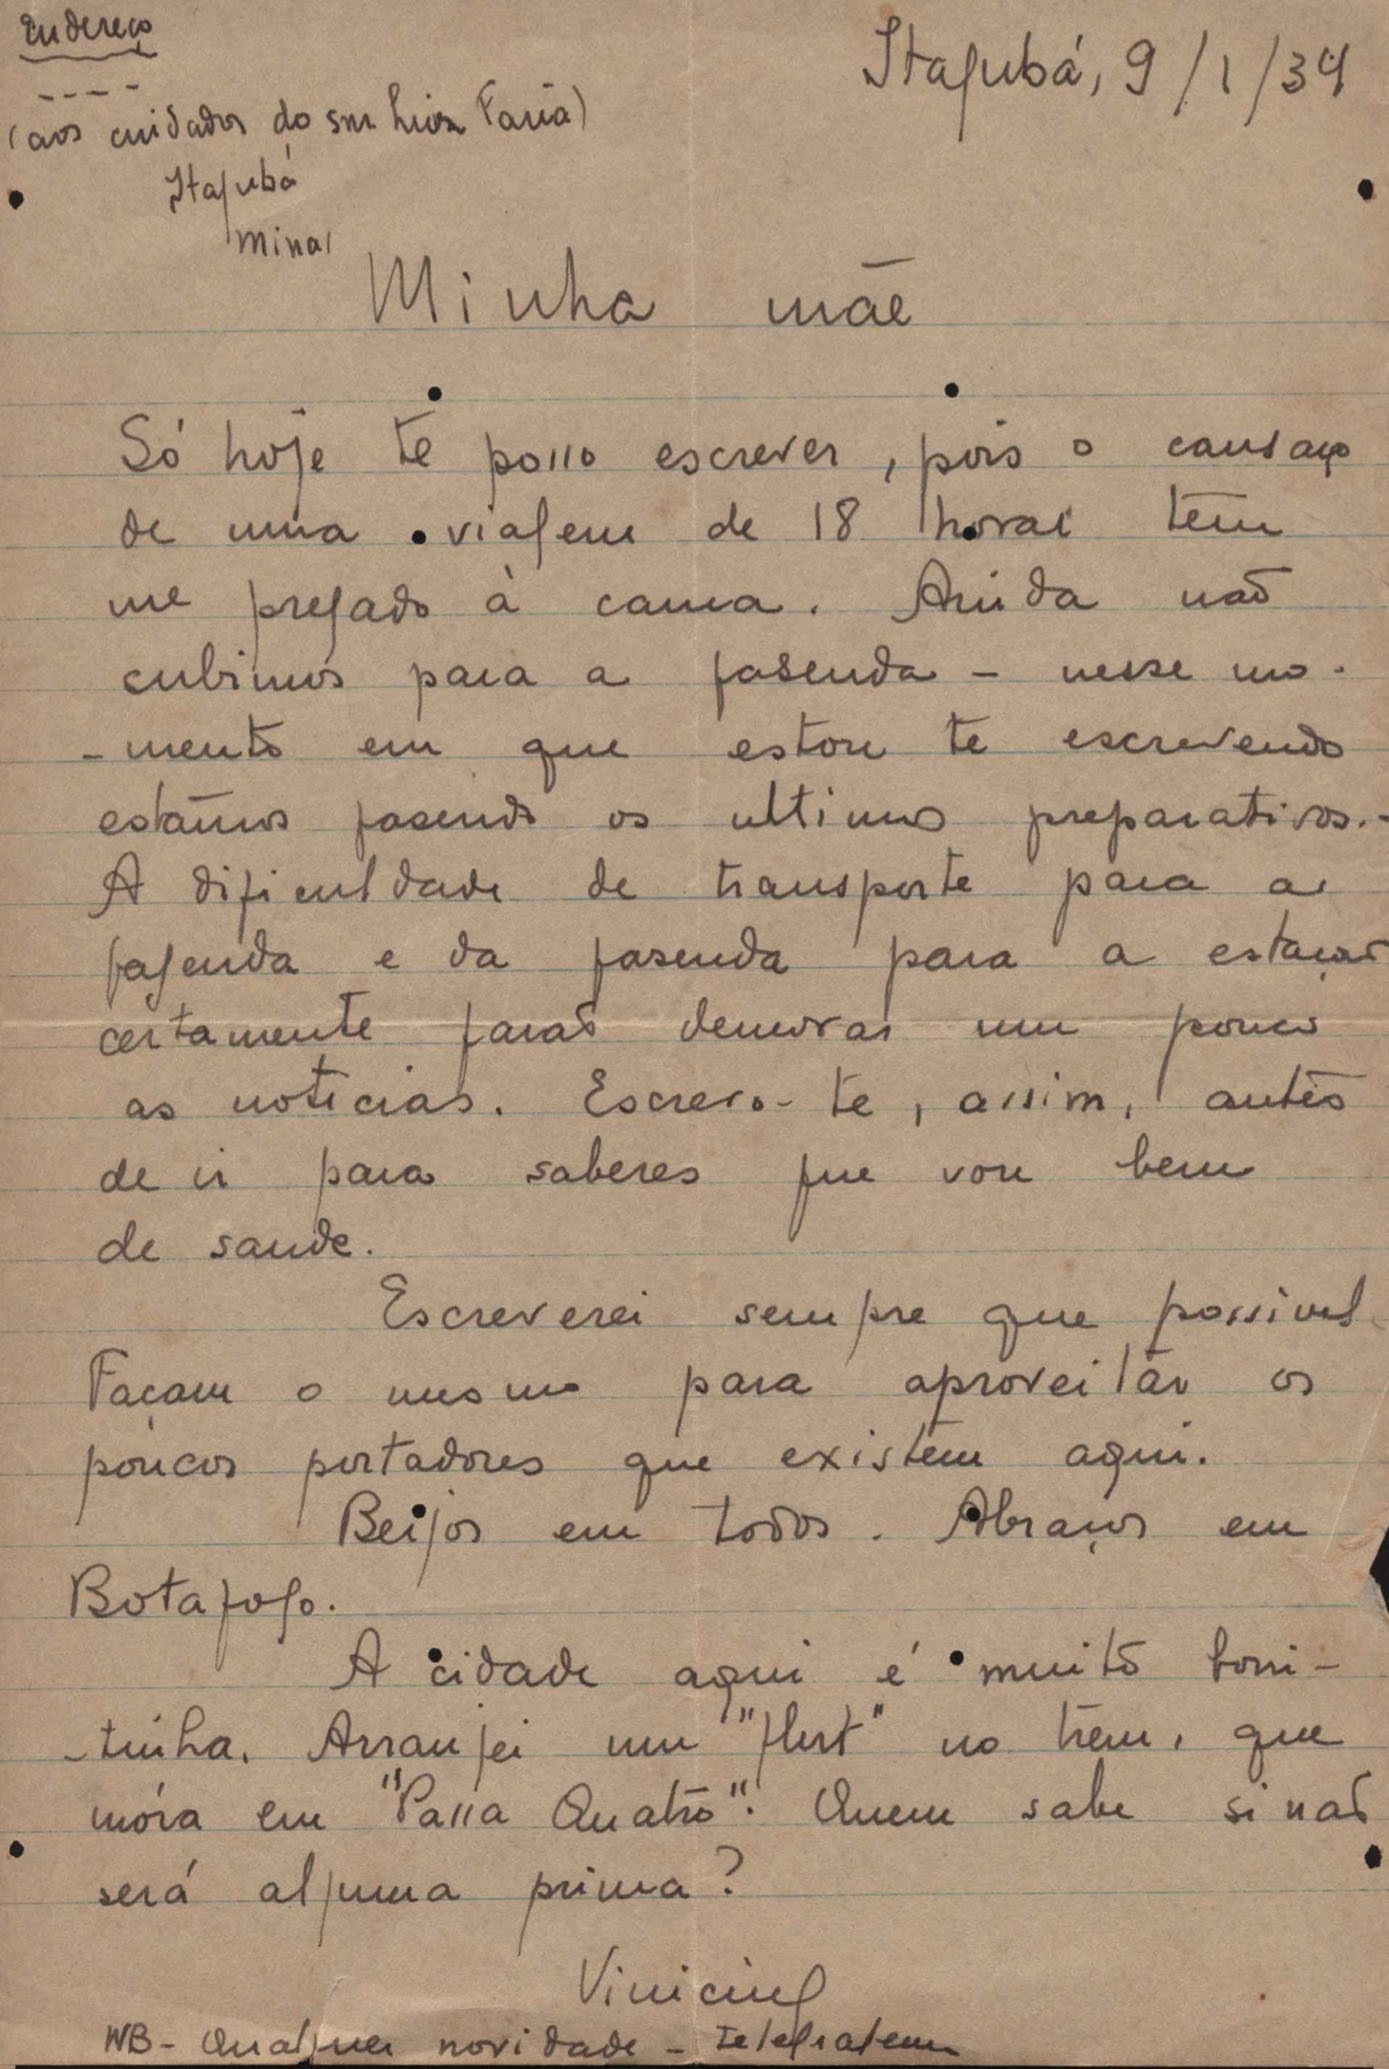 Endereço
(aos cuidados do snr Faria)
Itajubá
Minas
Itajubá, 9/1/34
Minha mãe
Só hoje te posso escrever, pois o cansaço
de uma viagem de 18 horas tem
me pregado à cama. Ainda não
subimos para a fasenda - nesse mo-
-mento em que estou te escrevendo
estamos fasendo os ultimos preparativos.-
A dificuldade de transporte para a
fasenda e da fasenda para a estação
certamente farão demorar um pouco
as noticias. Escrevo-te, assim, antes
de ir para saberes que vou bem
de saude.
Escreverei sempre que possivel
Façam o mesmo para aproveitar os
poucos portadores que existem aqui.
Beijos em todos. Abraços em
Botafogo.
A cidade aqui é muito boni-
-tinha. Arranjei um "flirt" no trem, que
móra em "Passa Quatro". Quem sabe si não
será alguma prima?
Vinicius
NB - Qualquer novidade - telegrafem